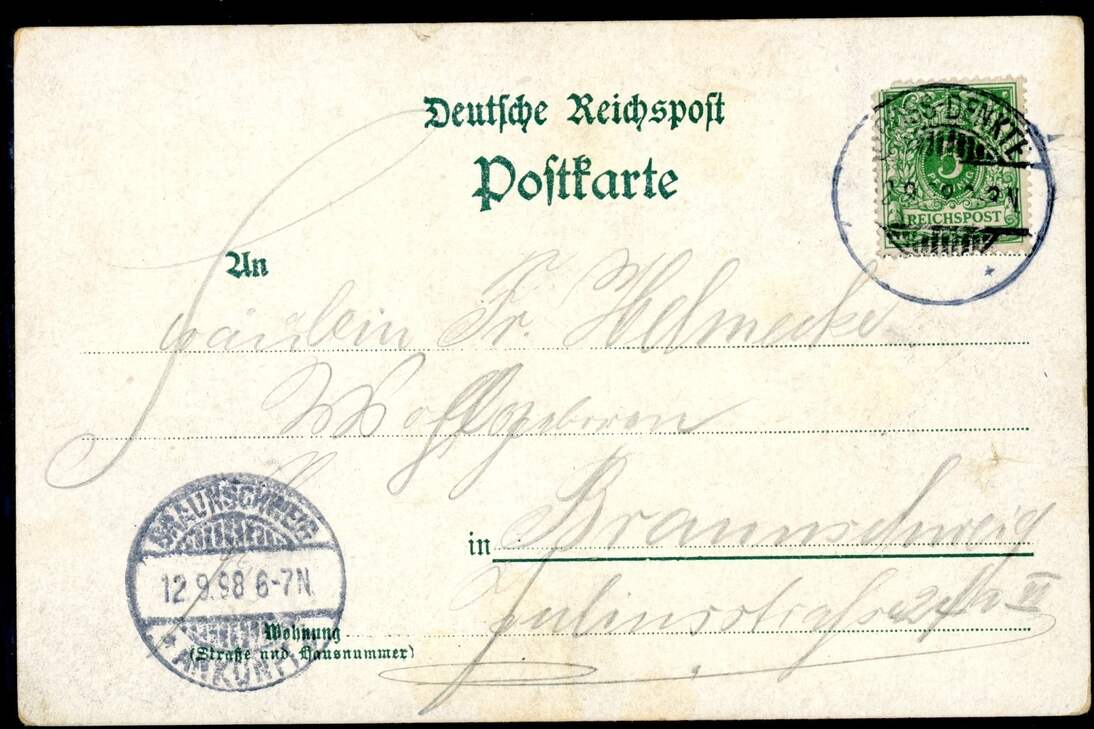 Deutsche Reichspost
Postkarte
GROSS-DENKTE
5
PFENNIG
REICHSPOST
An
Fräulein Fr. Helmecke
Wohlgeboren
in Braunschweig
BRAUNSCHWEIG
12.9.98 6-7N.
* ANKUNFT
Wohnung
(Straße und Hausnummer)
II